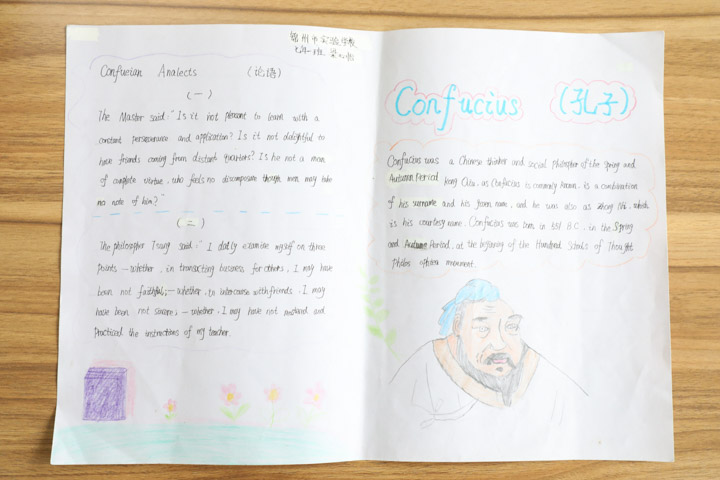 锦州市实验学校
Confucian Analects (论语)
(一)
The Master said:" Is it not pleasant to learn with a
constant perseverance and application? Is it not delightful to
have friends coming from distant quarters? Is he not a man
of complete virtue, who feels no discomposure though men may take
no note of him?"
(二)
The philosopher Tsang said:" I daily examine myself on three
points, — whether, in transacting business for others, I may have
been not faithful; — whether, in intercourse with friends, I may
have been not sincere; — whether, I may have not mastered and
Practiced the instructions of my teacher.
Confucius (孔子)
Confucius was a Chinese thinker and social philospher of the spring and
Autumn Period Kong Qiu, as Confucius is commonly known, is a combination
of his surname and his given name, and he was also as Zhong Ni, which
is his courtesy name. Confucius was born in 551 B.C, in the Spring
and Autumn Period, at the beginning of the Hundred Schools of Thought
movement.